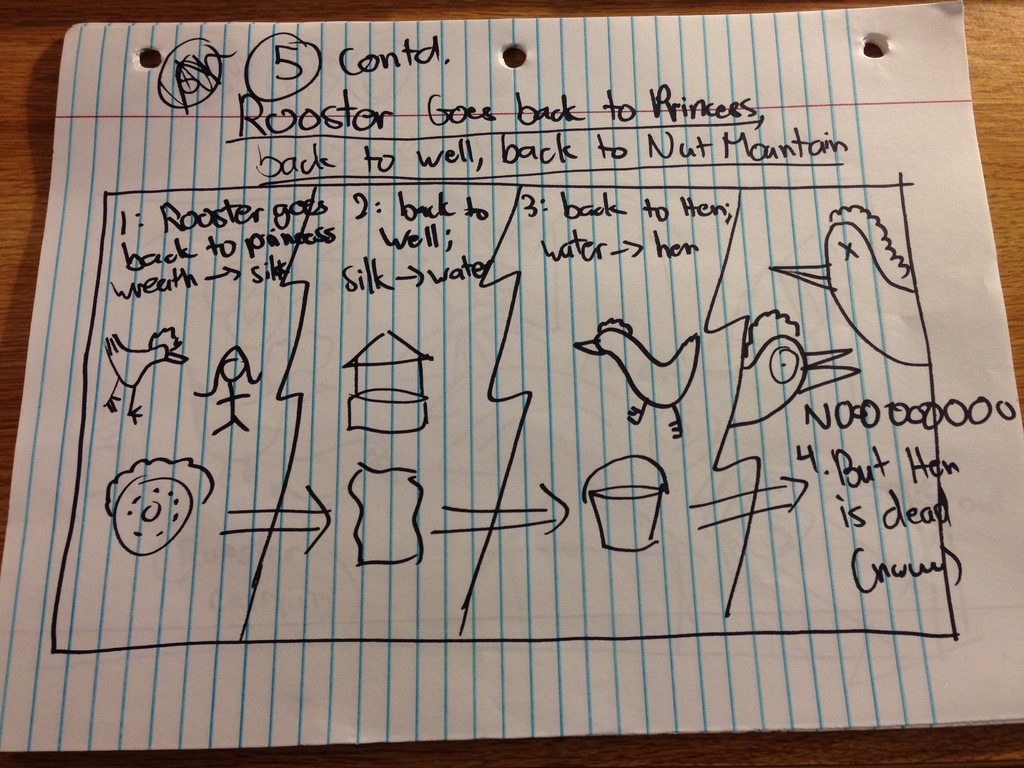 5 Contd.
Rooster Goes back to Princess,
back to well, back to Nut Mountain
1: Rooster goes
back to princess
wreath → silk
2: back to
well;
silk → water
3: back to Hen;
water → hen
NOOOOOOOO
4. But Hen
is dead
(now)